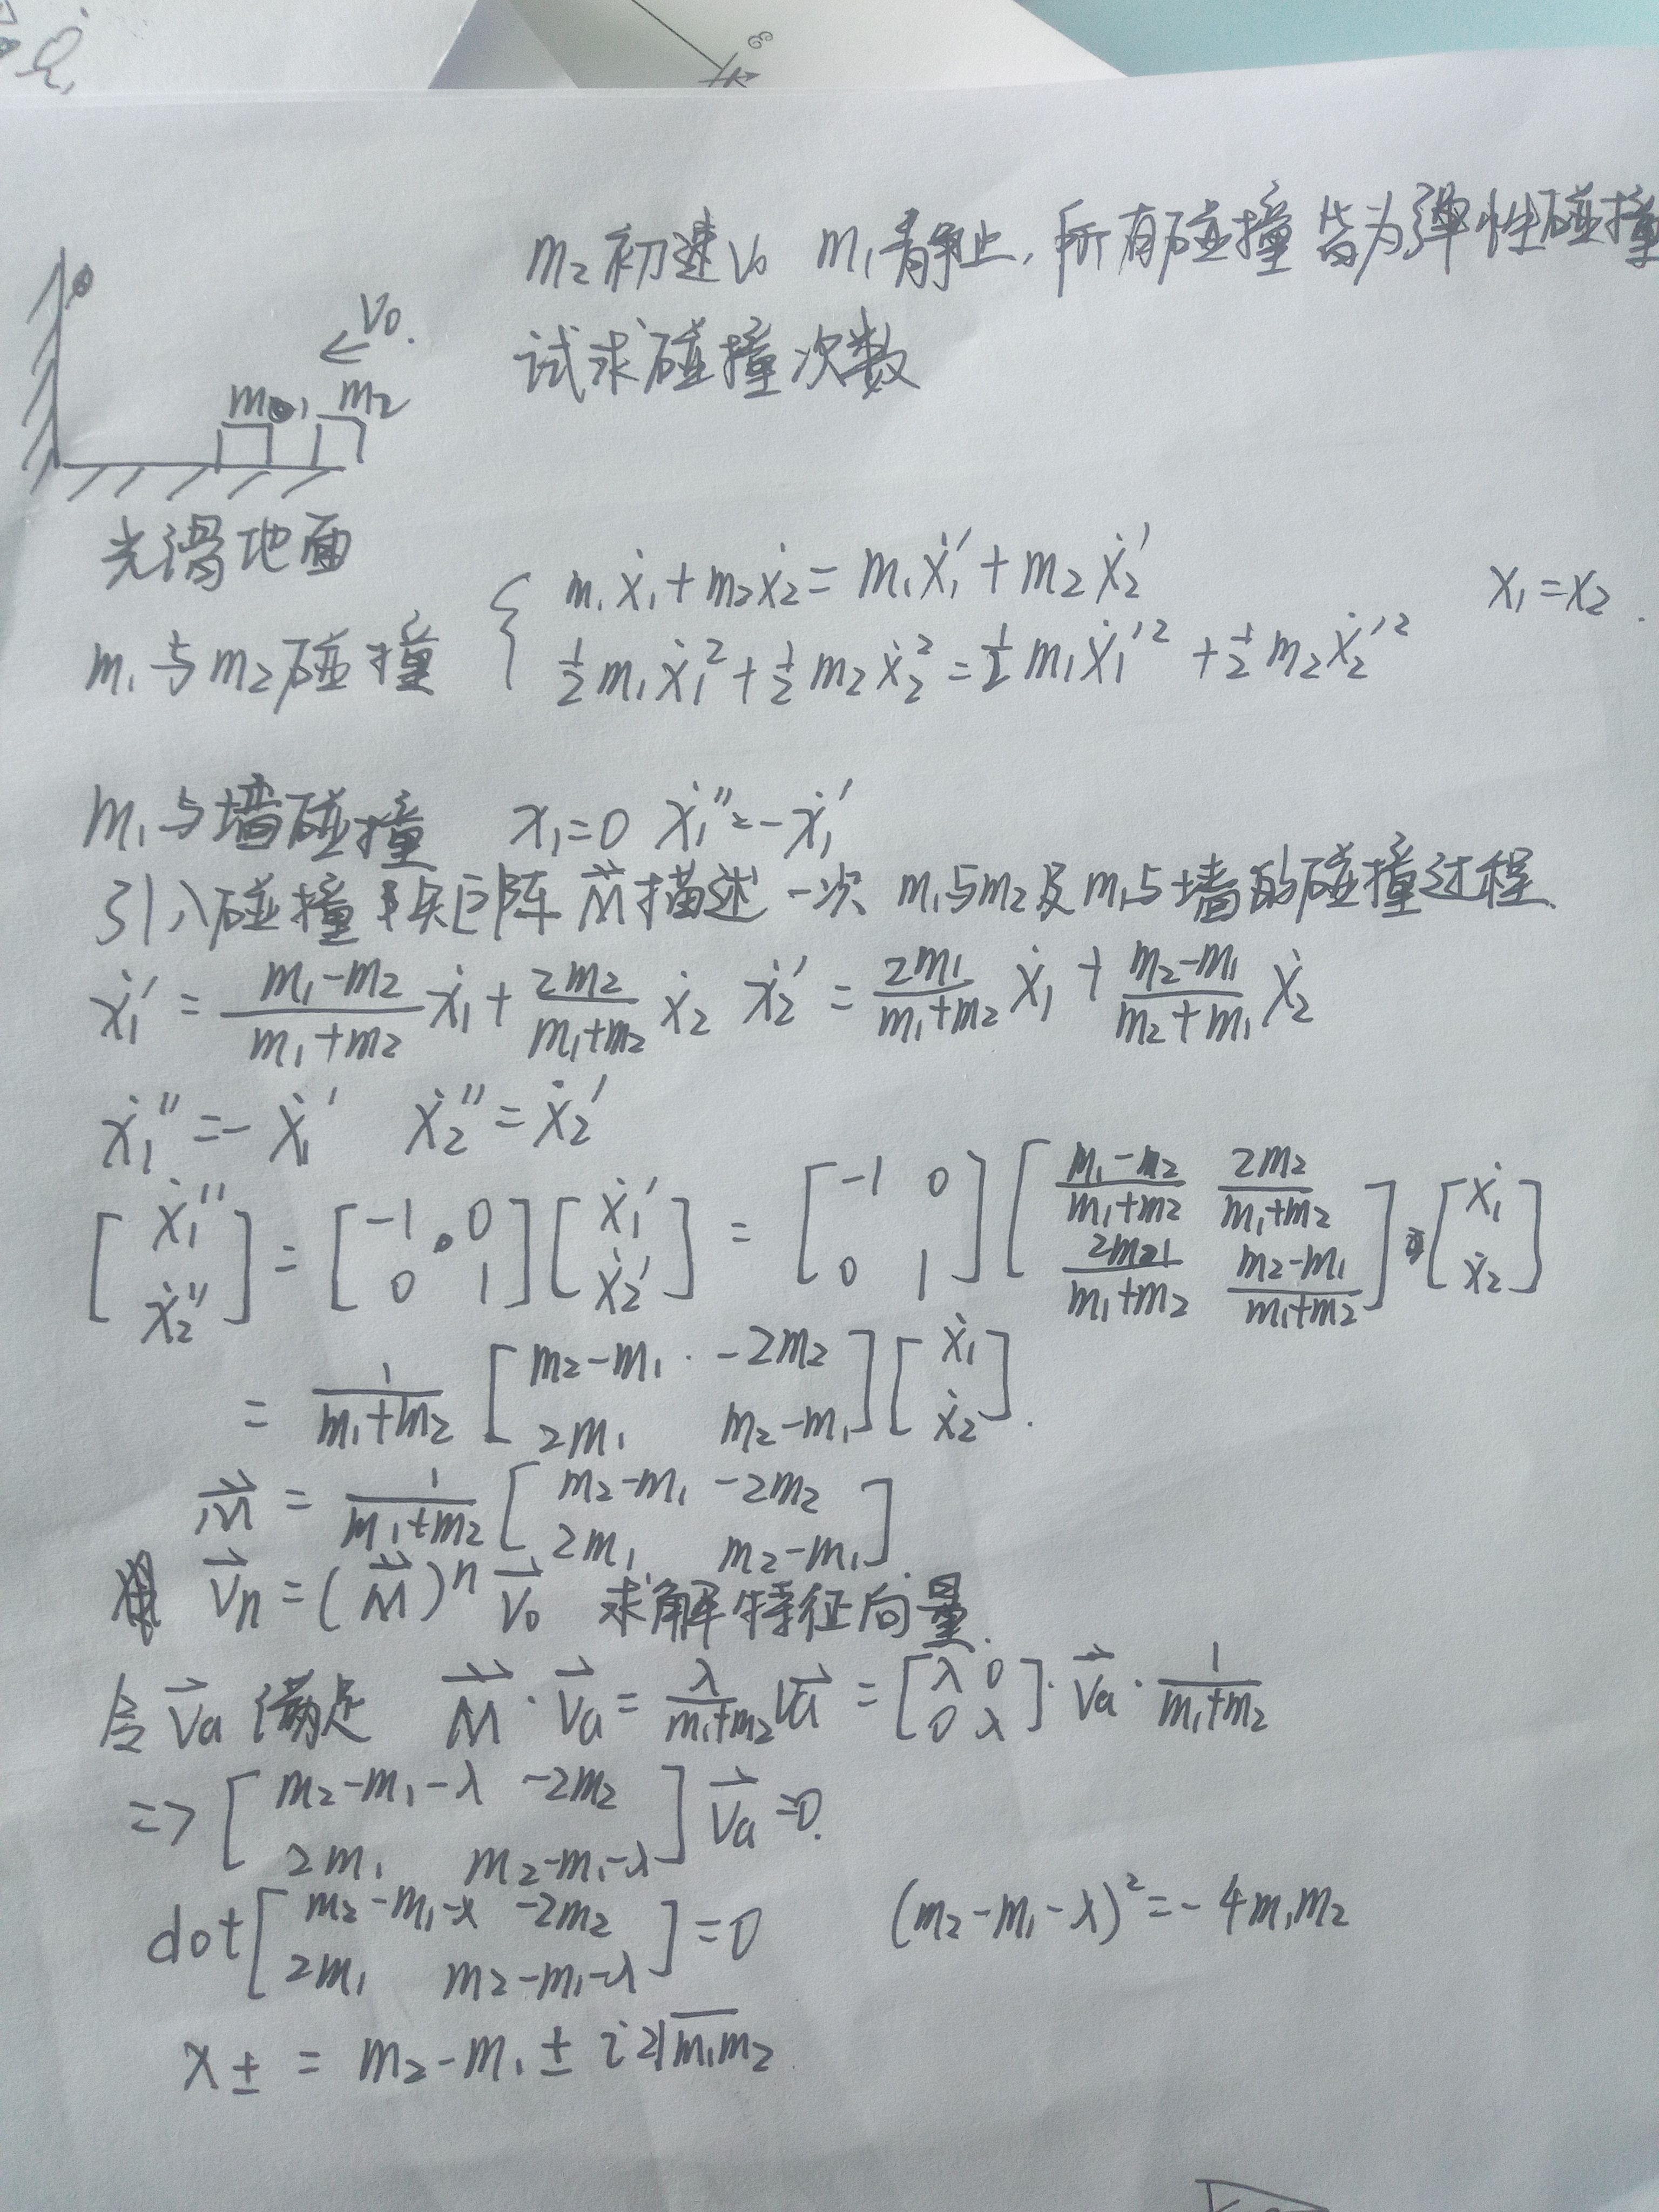 Q̇,
m₂初速v₀ m₁静止,所有碰撞皆为弹性碰撞
试求碰撞次数
V₀.
m₁ m₂
光滑地面
m₁与m₂碰撞 { m₁ẋ₁+m₂ẋ₂=m₁ẋ₁'+m₂ẋ₂' x₁=x₂.
½m₁ẋ₁²+½m₂ẋ₂²=½m₁ẋ₁'²+½m₂ẋ₂'²
m₁与墙碰撞 x₁=0 ẋ₁''=-ẋ₁'
引入碰撞矩阵 M⃗描述一次 m₁与m₂及m₁与墙的碰撞过程.
ẋ₁' = (m₁-m₂)/(m₁+m₂) ẋ₁ + 2m₂/(m₁+m₂) ẋ₂ ẋ₂' = 2m₁/(m₁+m₂) ẋ₁ + (m₂-m₁)/(m₂+m₁) ẋ₂
ẋ₁''=-ẋ₁' ẋ₂''=ẋ₂'
[ẋ₁''; ẋ₂''] = [-1 0; 0 1][ẋ₁'; ẋ₂'] = [-1 0; 0 1][(m₁-m₂)/(m₁+m₂) 2m₂/(m₁+m₂); 2m₁/(m₁+m₂) (m₂-m₁)/(m₁+m₂)][ẋ₁; ẋ₂]
= 1/(m₁+m₂) [m₂-m₁ -2m₂; 2m₁ m₂-m₁][ẋ₁; ẋ₂].
M⃗ = 1/(m₁+m₂) [m₂-m₁ -2m₂; 2m₁ m₂-m₁]
V⃗n=(M⃗)ⁿV⃗₀ 求解特征向量.
令V⃗a满足 M⃗·V⃗a = λ/(m₁+m₂) V⃗a = [λ 0; 0 λ]·V⃗a·1/(m₁+m₂)
=> [m₂-m₁-λ -2m₂; 2m₁ m₂-m₁-λ] V⃗a=0.
dot[m₂-m₁-λ -2m₂; 2m₁ m₂-m₁-λ]=0 (m₂-m₁-λ)²=-4m₁m₂
λ± = m₂-m₁ ± i2√m₁m₂